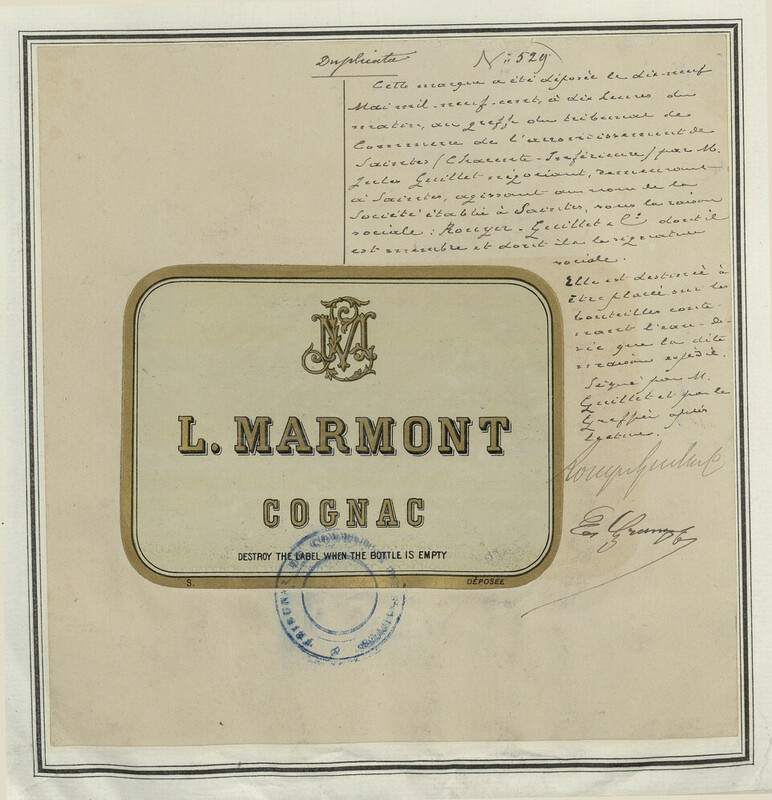 Duplicata
N° 529
Cette marque a été déposée le dix-neuf
Mai mil-neuf-cent, à dix heures du
matin, au greffe du tribunal de
Commerce de l'arrondissement de
Saintes (Charente-Inférieure) par M.
Jules Guillet négociant, demeurant
à Saintes, agissant au nom de la
Société établie à Saintes, sous la raison
sociale : Rouyer-Guillet & Cie dont il
est membre et dont il a la signature
sociale.
Elle est destinée à
être placée sur les
bouteilles conte-
nant l'eau-de-
vie que la dite
maison expédie.
Signé par M.
Guillet et par le
Greffier après
lecture.
Rouyer Guillet & C
L. MARMONT
COGNAC
DESTROY THE LABEL WHEN THE BOTTLE IS EMPTY
S.
DÉPOSÉE